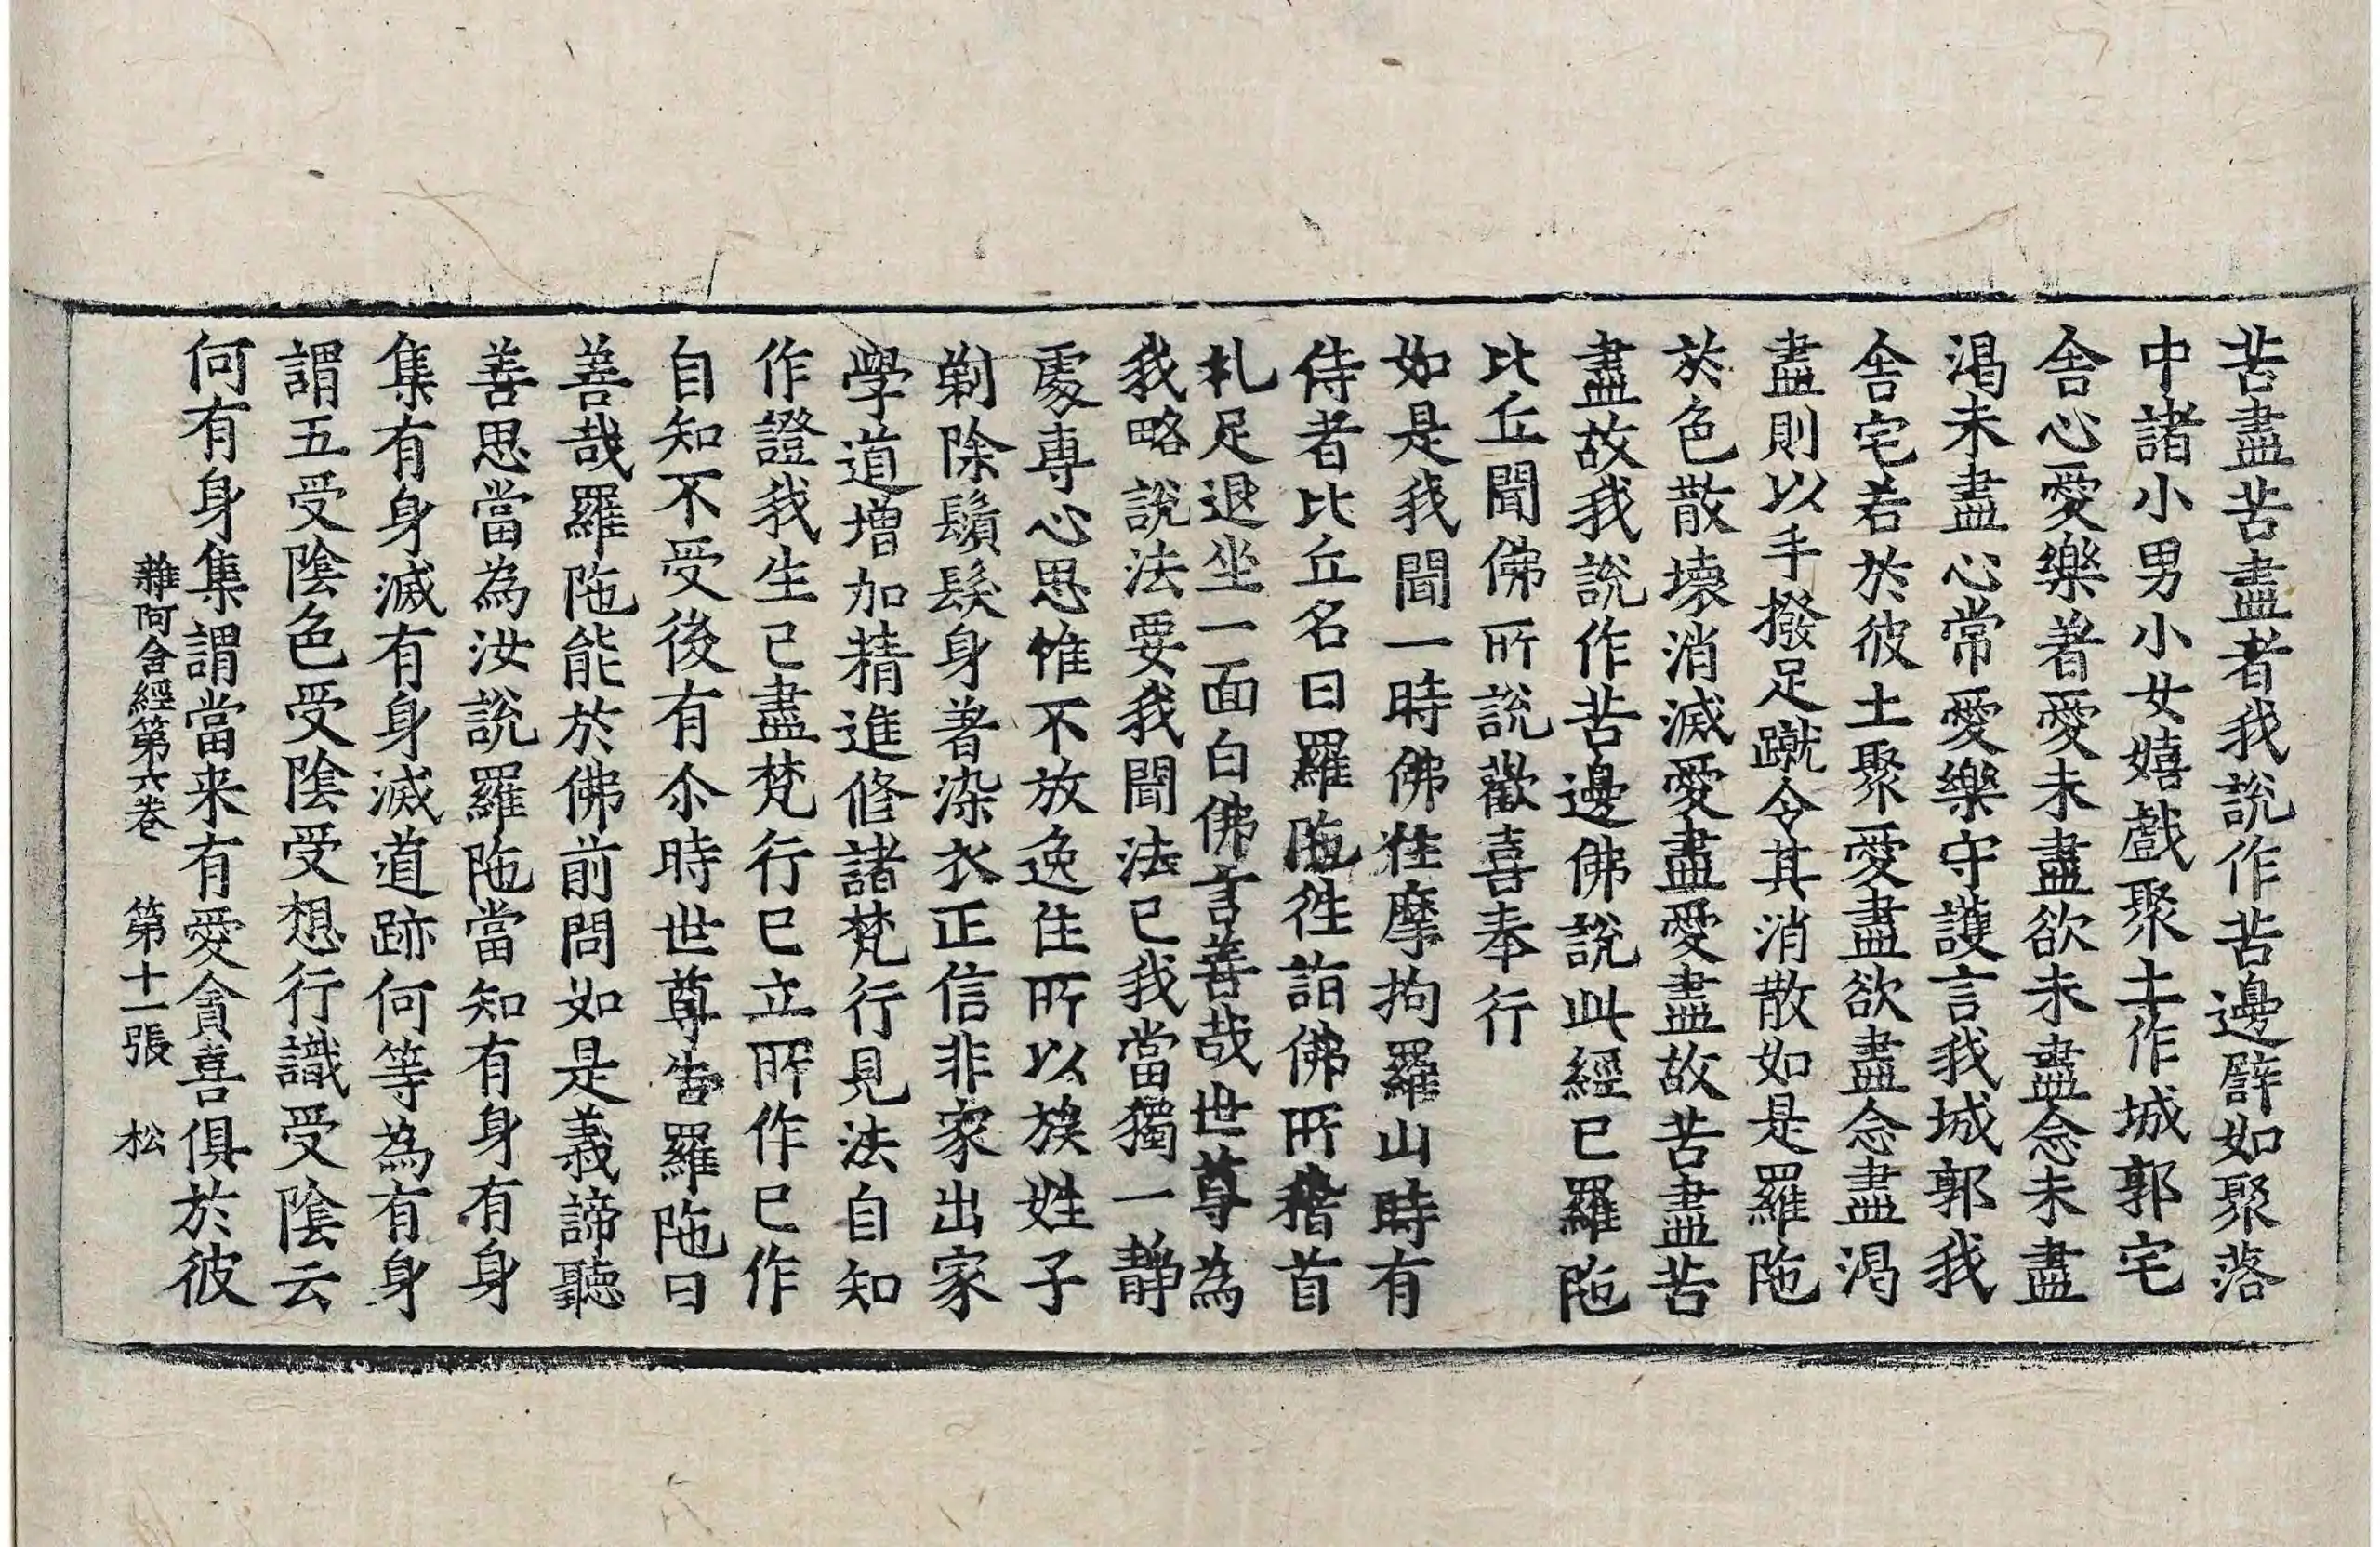 苦盡苦盡者我說作苦邊譬如聚落
中諸小男小女嬉戲聚土作城郭宅
舍心愛樂著愛未盡欲未盡念未盡
渴未盡心常愛樂守護言我城郭我
舍宅若於彼土聚愛盡欲盡念盡渴
盡則以手撥足蹴令其消散如是羅陁
於色散壞消滅愛盡愛盡故苦盡苦
盡故我說作苦邊佛說此經已羅陁
比丘聞佛所說歡喜奉行
如是我聞一時佛住摩拘羅山時有
侍者比丘名曰羅陁往詣佛所稽首
礼足退坐一面白佛言善哉世尊為
我略說法要我聞法已我當獨一静
處專心思惟不放逸住所以族姓子
剃除鬚髮身著染衣正信非家出家
學道增加精進修諸梵行見法自知
作證我生已盡梵行已立所作已作
自知不受後有尒時世尊告羅陁曰
善哉羅陁能於佛前問如是義諦聽
善思當為汝說羅陁當知有身有身
集有身滅有身滅道跡何等為有身
謂五受陰色受陰受想行識受陰云
何有身集謂當来有愛貪喜俱於彼
雜阿含經第六卷 第十一張 松